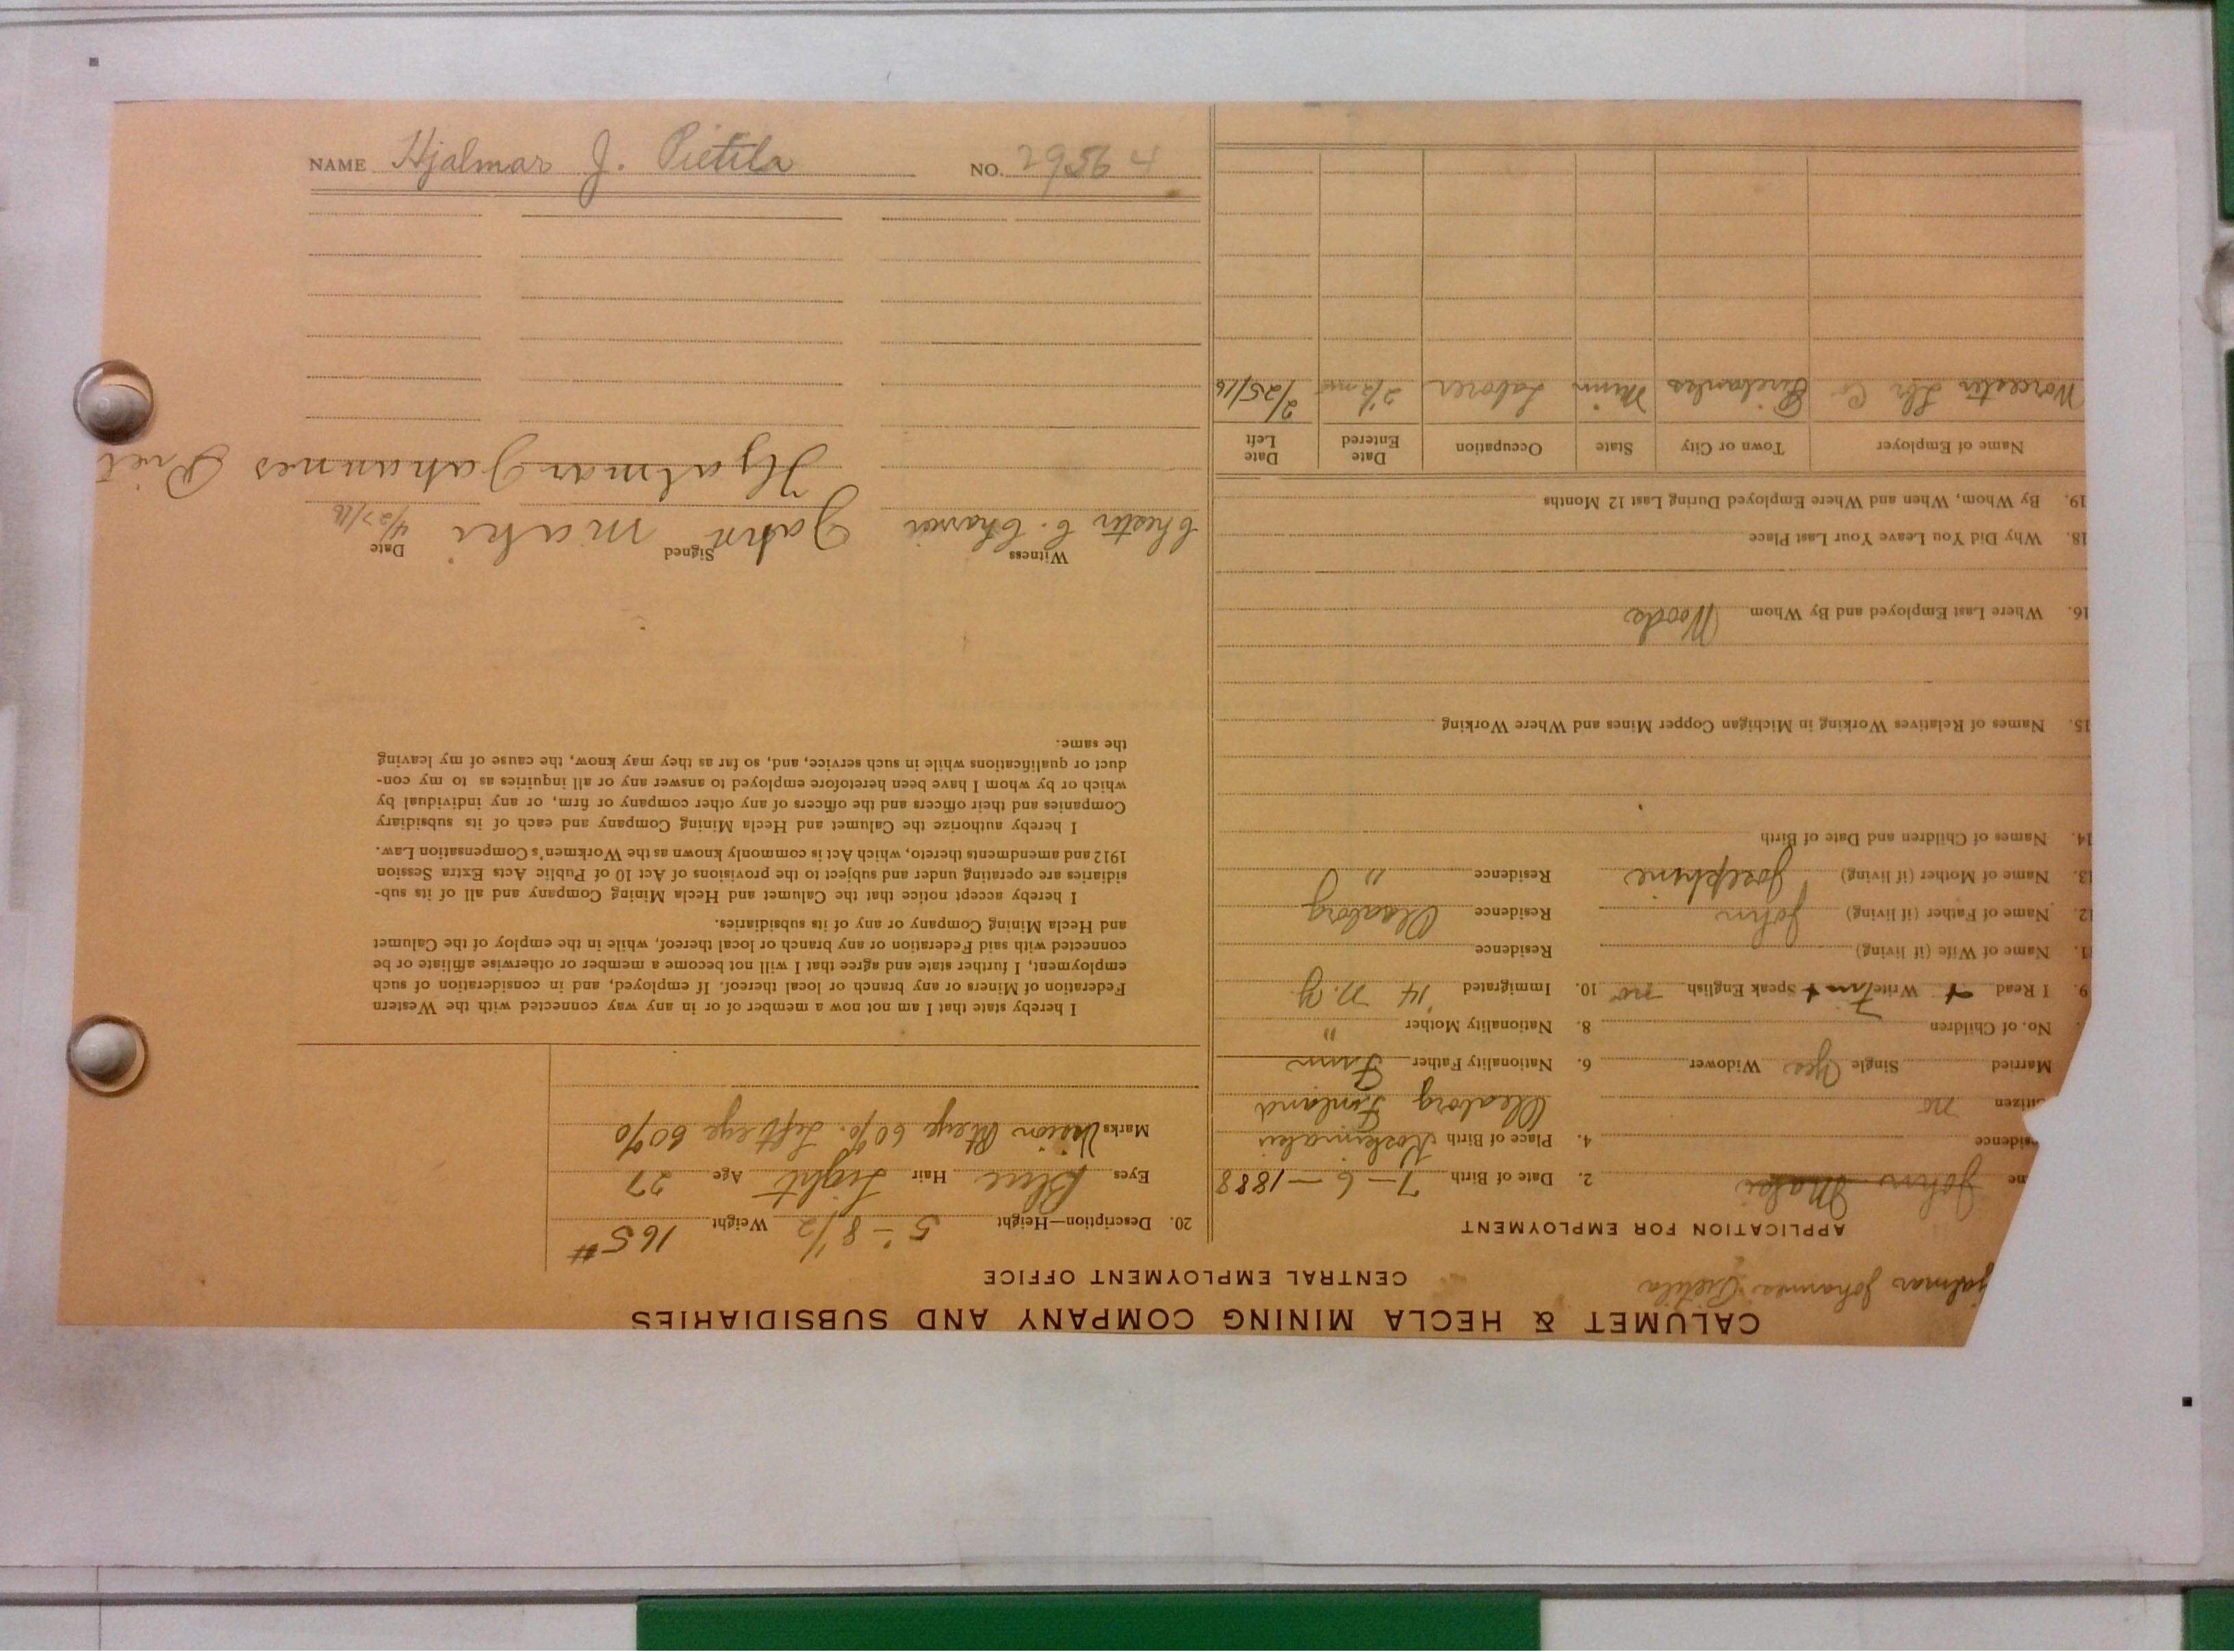 NAME Hjalmar J. Pietila NO. 29564
CALUMET & HECLA MINING COMPANY AND SUBSIDIARIES
CENTRAL EMPLOYMENT OFFICE
jalmar Johannes Pietila
APPLICATION FOR EMPLOYMENT
me John Maki 2. Date of Birth 7-6-1888
sidence 4. Place of Birth
itizen no Uleaborg Finland
Married Single Yes Widower 6. Nationality Father Finn
No. of Children 8. Nationality Mother "
9. I Read + Write Finn + Speak English no 10. Immigrated 14 N.Y
11. Name of Wife (if living) Residence
12. Name of Father (if living) John Residence Uleaborg
13. Name of Mother (if living) Josephine Residence "
14. Names of Children and Date of Birth
15. Names of Relatives Working in Michigan Copper Mines and Where Working
16. Where Last Employed and By Whom Woods
18. Why Did You Leave Your Last Place
19. By Whom, When and Where Employed During Last 12 Months
Name of Employer Town or City State Occupation Date Entered Date Left
Worcester Lbr Co Minn Laborer 2 1/2 mos 2/25/16
20. Description—Height 5-8 1/2 Weight 165#
Eyes Blue Hair Light Age 27
Marks Vision Rt eye 60%. Left eye 60%
I hereby state that I am not now a member of or in any way connected with the Western
Federation of Miners or any branch or local thereof. If employed, and in consideration of such
employment, I further state and agree that I will not become a member or otherwise affiliate or be
connected with said Federation or any branch or local thereof, while in the employ of the Calumet
and Hecla Mining Company or any of its subsidiaries.
I hereby accept notice that the Calumet and Hecla Mining Company and all of its sub-
sidiaries are operating under and subject to the provisions of Act 10 of Public Acts Extra Session
1912 and amendments thereto, which Act is commonly known as the Workmen's Compensation Law.
I hereby authorize the Calumet and Hecla Mining Company and each of its subsidiary
Companies and their officers and the officers of any other company or firm, or any individual by
which or by whom I have been heretofore employed to answer any or all inquiries as to my con-
duct or qualifications while in such service, and, so far as they may know, the cause of my leaving
the same.
Witness Signed Date
Chester C. John Maki 4/27/16
Hjalmar Johannes Piet